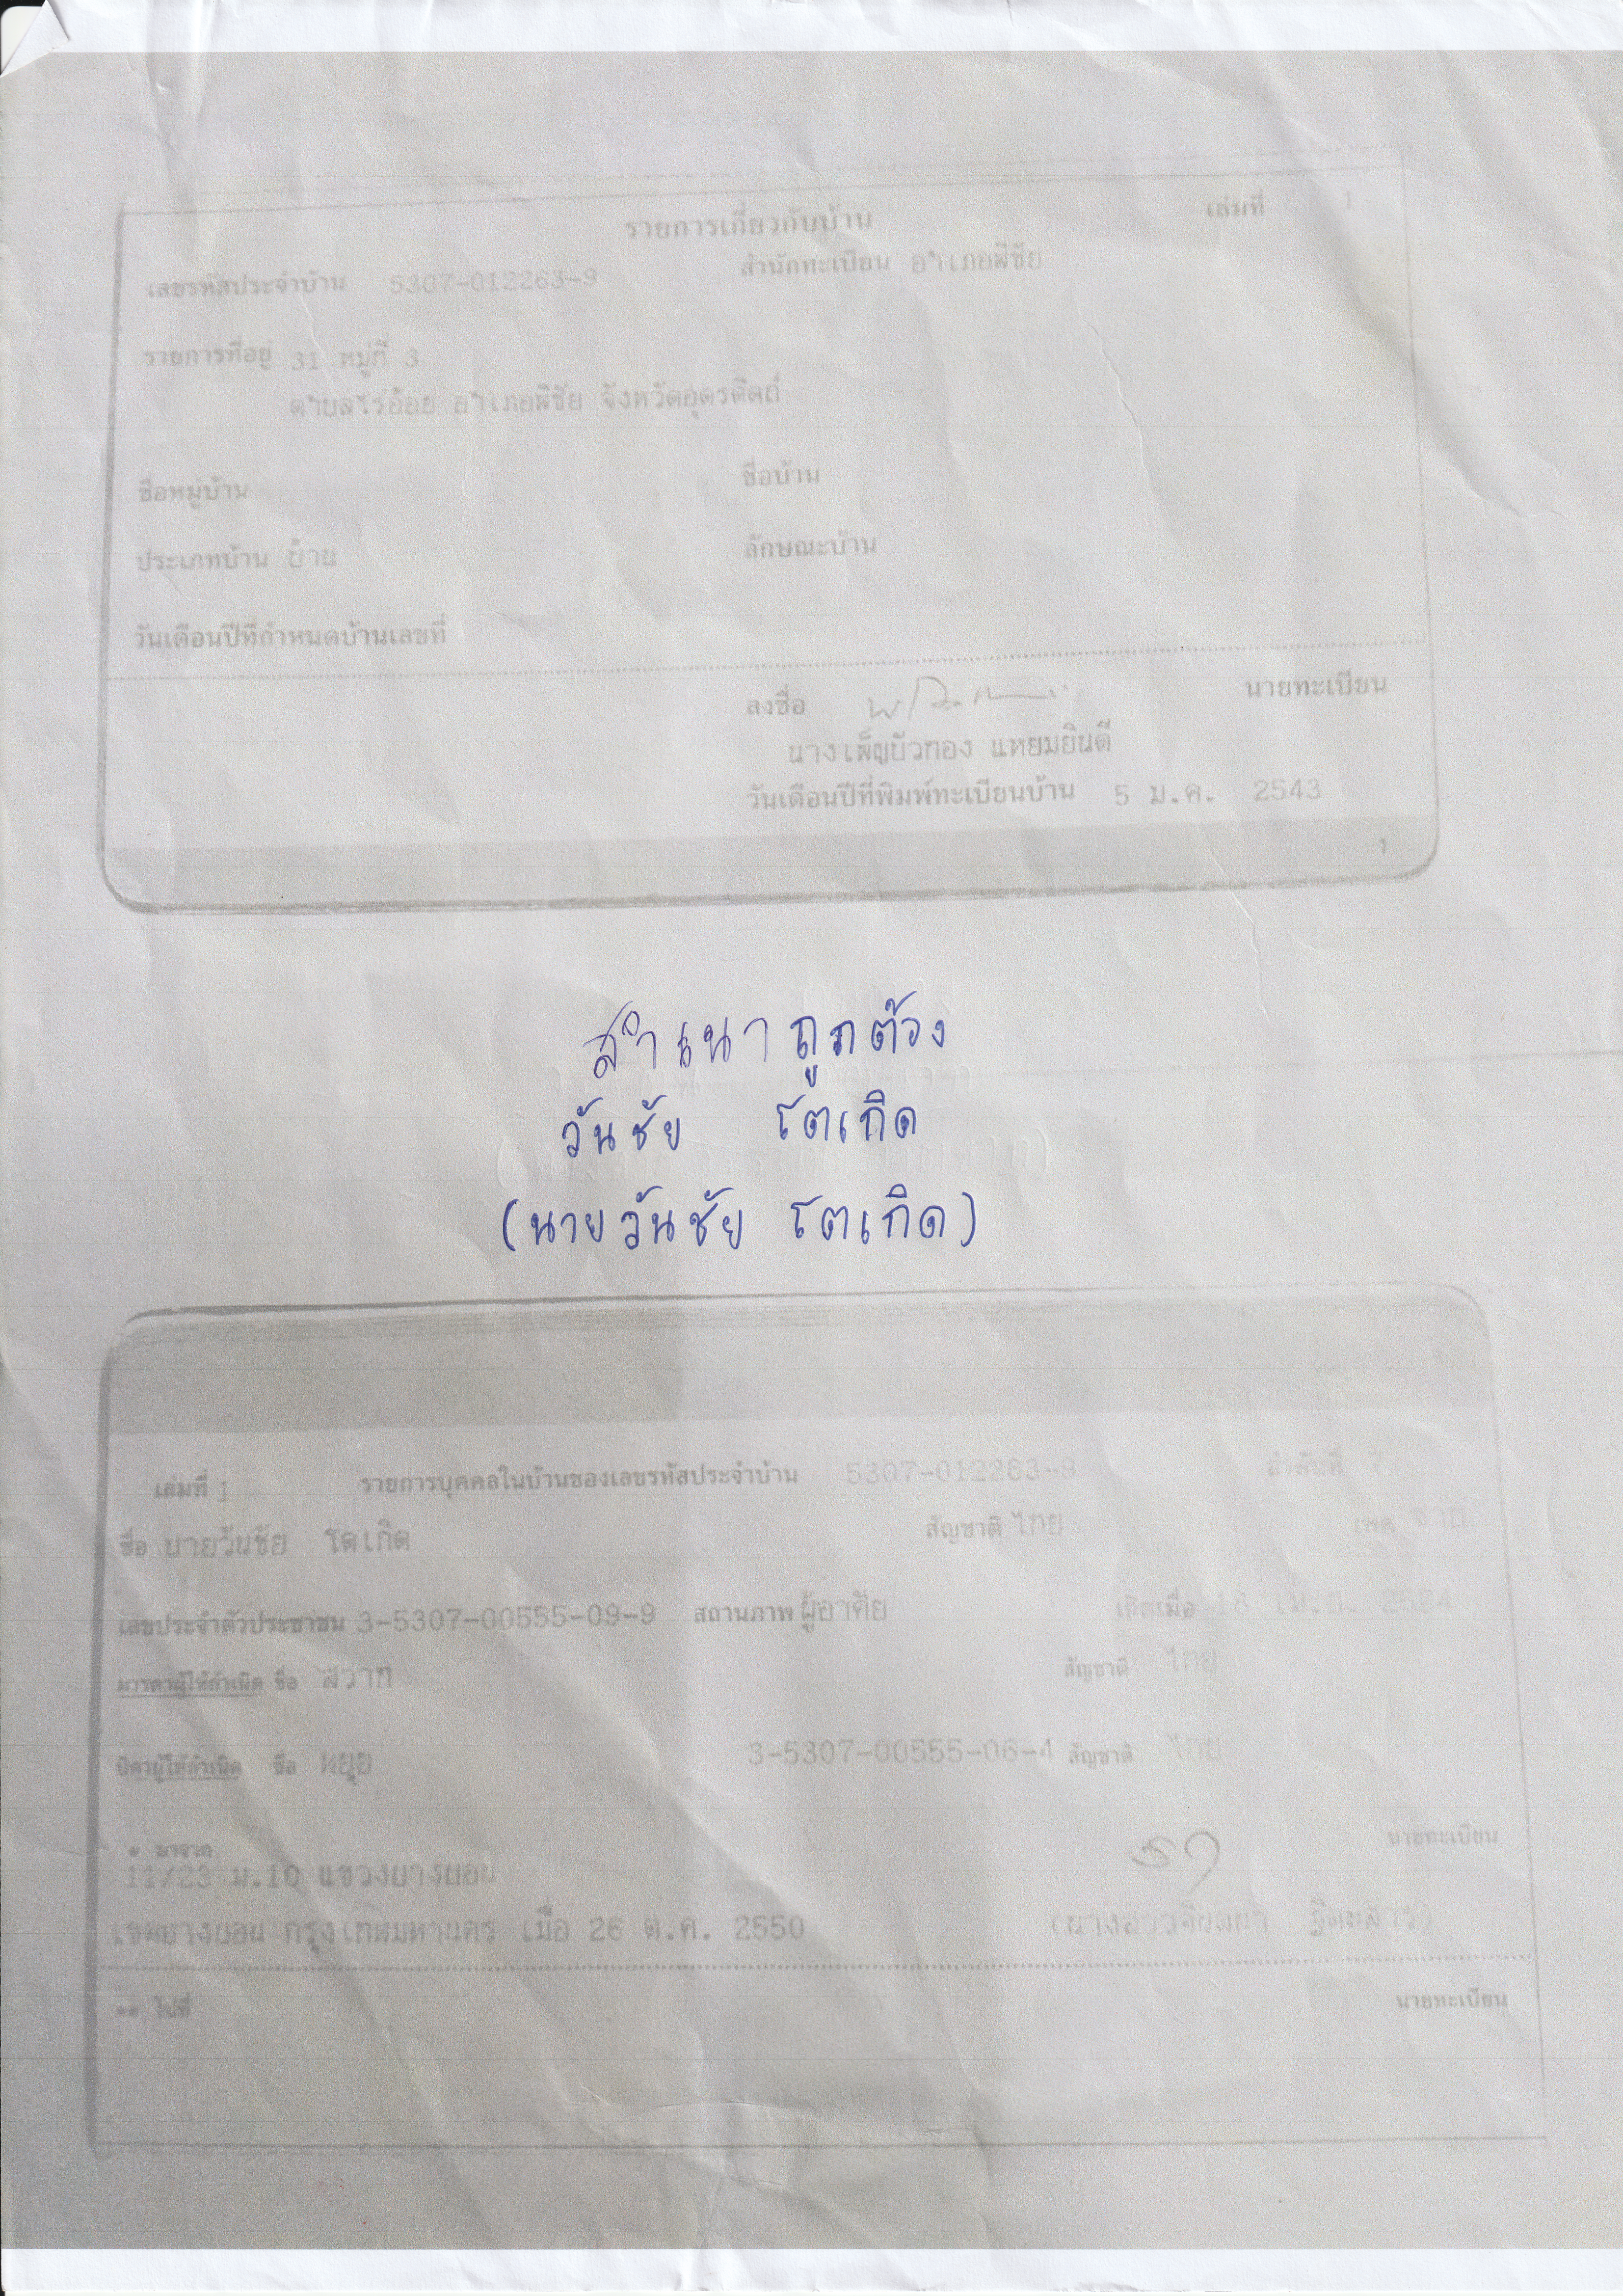 รายการเกี่ยวกับบ้าน เล่มที่ 1
เลขรหัสประจำบ้าน 5307-012263-9 สำนักทะเบียน อำเภอพิชัย
รายการที่อยู่ 31 หมู่ที่ 3
ตำบลไร่อ้อย อำเภอพิชัย จังหวัดอุตรดิตถ์
ชื่อหมู่บ้าน ชื่อบ้าน
ประเภทบ้าน บ้าน ลักษณะบ้าน
วันเดือนปีที่กำหนดบ้านเลขที่
ลงชื่อ นายทะเบียน
นางเพ็ญบัวทอง แหยมยินดี
วันเดือนปีที่พิมพ์ทะเบียนบ้าน 5 ม.ค. 2543
1
สำเนาถูกต้อง
วันชัย โตเกิด
(นายวันชัย โตเกิด)
เล่มที่ 1 รายการบุคคลในบ้านของเลขรหัสประจำบ้าน 5307-012263-9 ลำดับที่
ชื่อ นายวันชัย โตเกิด สัญชาติ ไทย เพศ ชาย
เลขประจำตัวประชาชน 3-5307-00555-09-9 สถานภาพ ผู้อาศัย เกิดเมื่อ 18 เม.ย. 2524
มารดาผู้ให้กำเนิด ชื่อ สวาท สัญชาติ ไทย
บิดาผู้ให้กำเนิด ชื่อ หยุย 3-5307-00555-06-4 สัญชาติ ไทย
* มาจาก นายทะเบียน
11/23 ม.10 แขวงบางบอน
เขตบางบอน กรุงเทพมหานคร เมื่อ 26 ต.ค. 2550
** ไปที่ นายทะเบียน